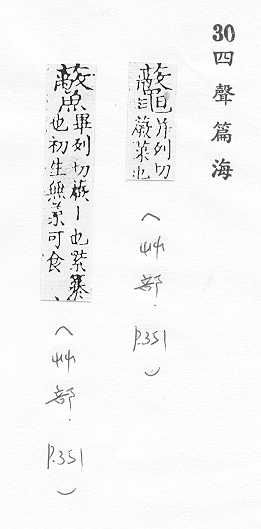 30四聲篇海
虌并列切
蕨菜也
(艸部. P.351)
畢列切蕨丨也紫
也初生無葉可食
(艸部. P.351)